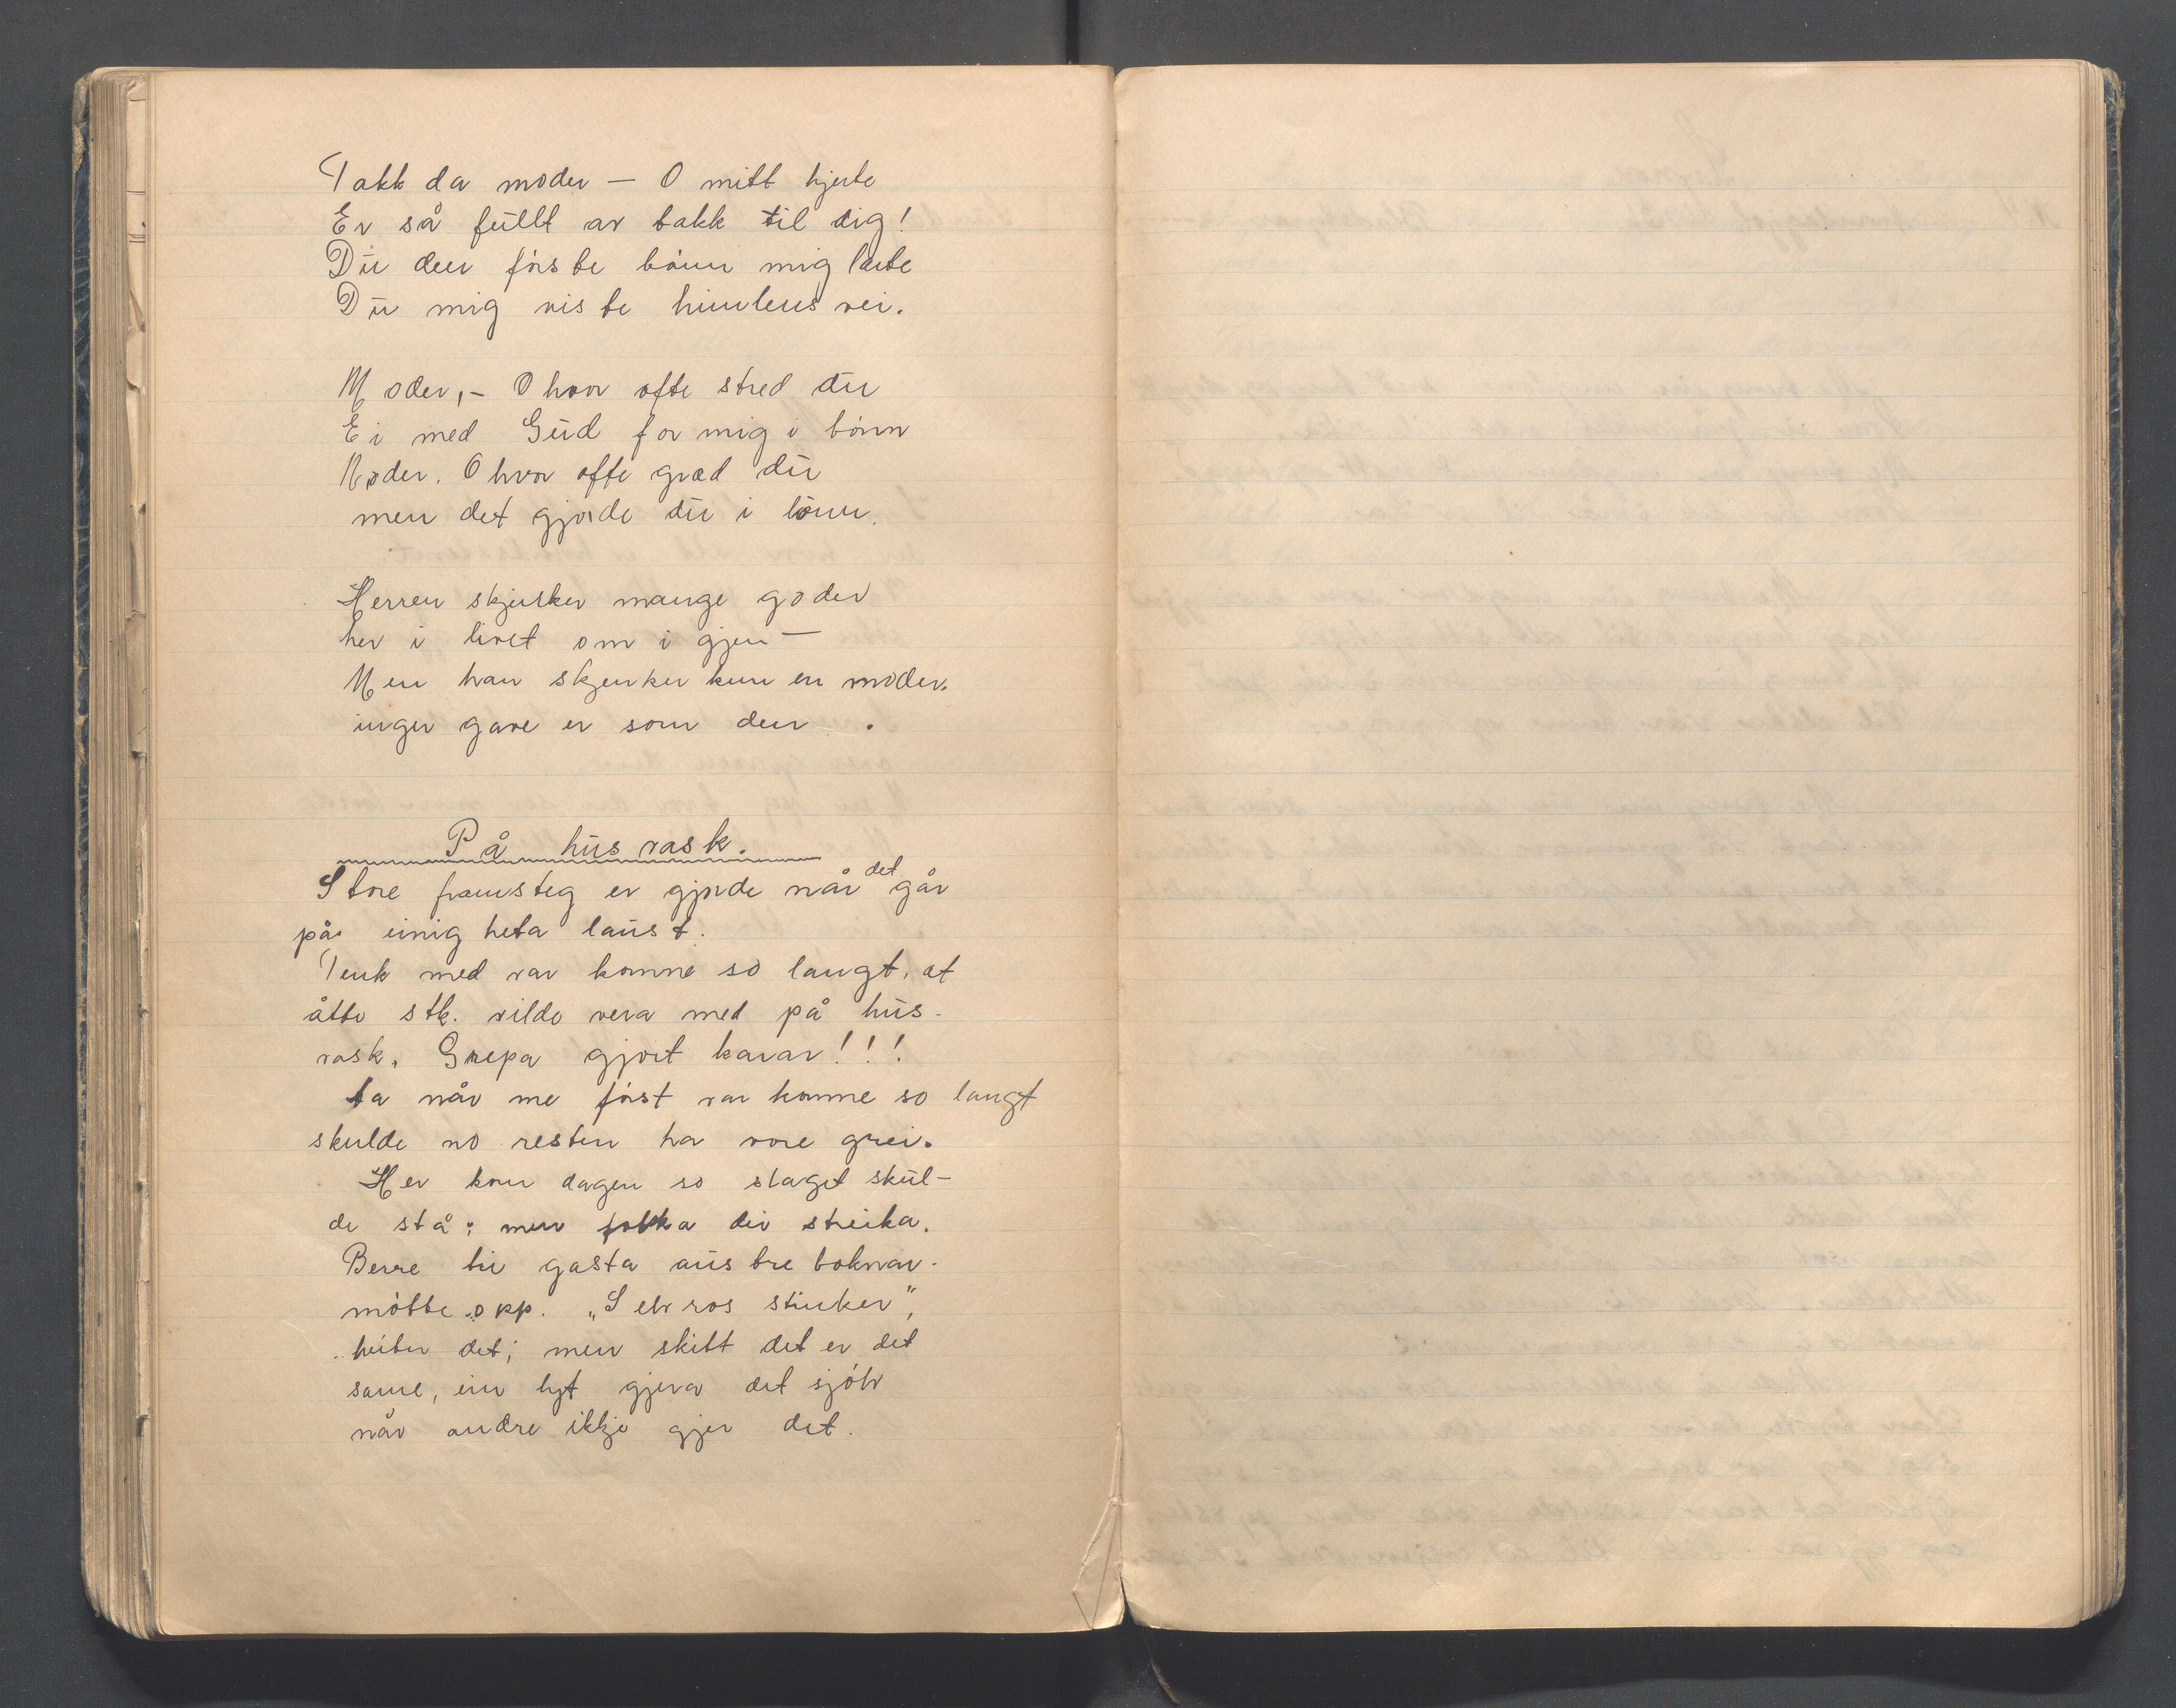 Takk da moder — O mitt hjerte
Er så fullt av takk til dig!
Du den första bönn mig lærte
Du mig viste himlens vei.
Moder, – O hvor ofte stred du
Ei med Gud for mig i bönn
Moder. O hvor ofte græd du
men det gjorde du i lönn.
Herren skjenker mange goder
her i livet om i gjen —
Men han skjenker kun en moder.
ingen gave er som den .
På husrask.
Store framsteg er gjorde når det går
på einigheta laust.
Tenk med var komne so langt, at
åtte stk. vilde vera med på hus-
rask. Grepa gjort karar!!!
Ja når me först var komne so langt
skulde no resten ha vore grei.
Her kom dagen so slaget skul-
de stå; men folka dei streika.
Berre tri gasta austre boknar-
mötte opp. „Selvros stinker",
heiter det; men skitt det er det
same, ein lyt gjera det sjölv
når andre ikkje gjer det.